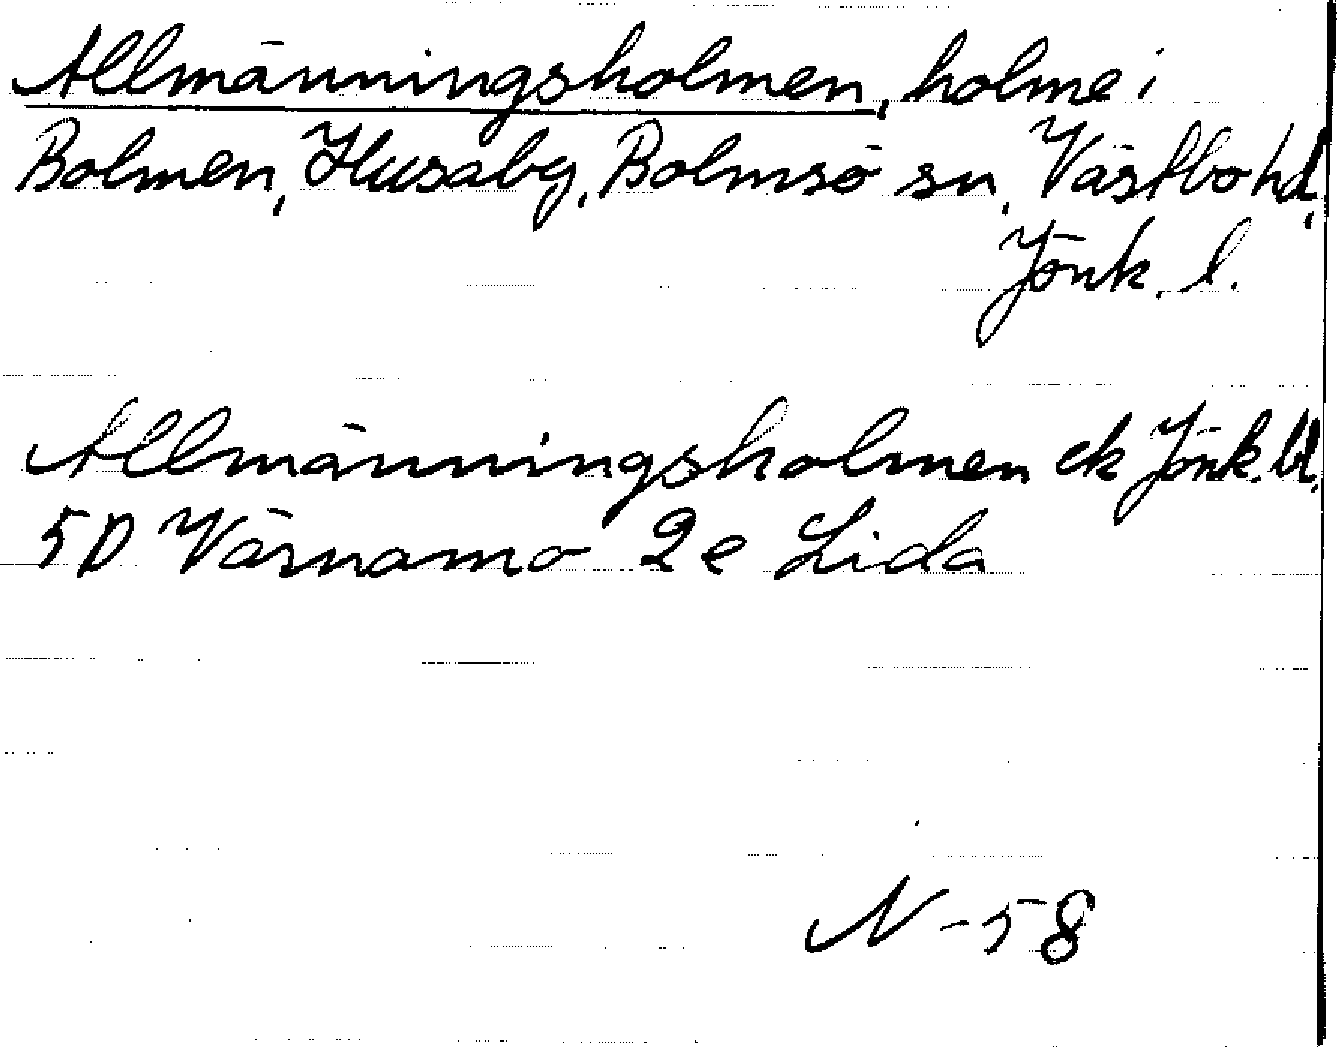 Allmänningsholmen, holme i
Bolmen, Husaby, Bolmsö sn, Västbo hd,
Jönk. l.
Allmänningsholmen ek Jönk. bl.
5D Värnamo 2e Lida
N-58